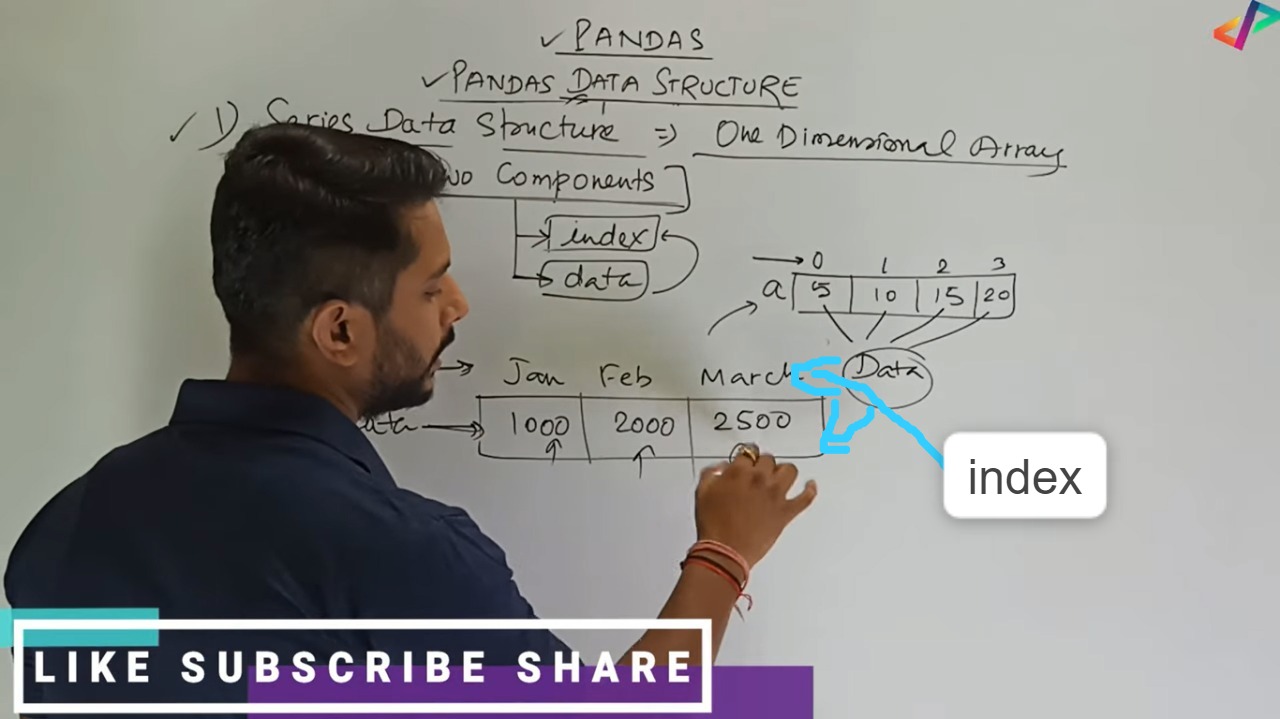 ✓ PANDAS
✓ PANDAS DATA STRUCTURE
✓ 1) Series Data Structure ⇒ One Dimensional Array
Components
index
data
0 1 2 3
a 5 10 15 20
Data
Jan Feb March
1000 2000 2500
index
LIKE SUBSCRIBE SHARE